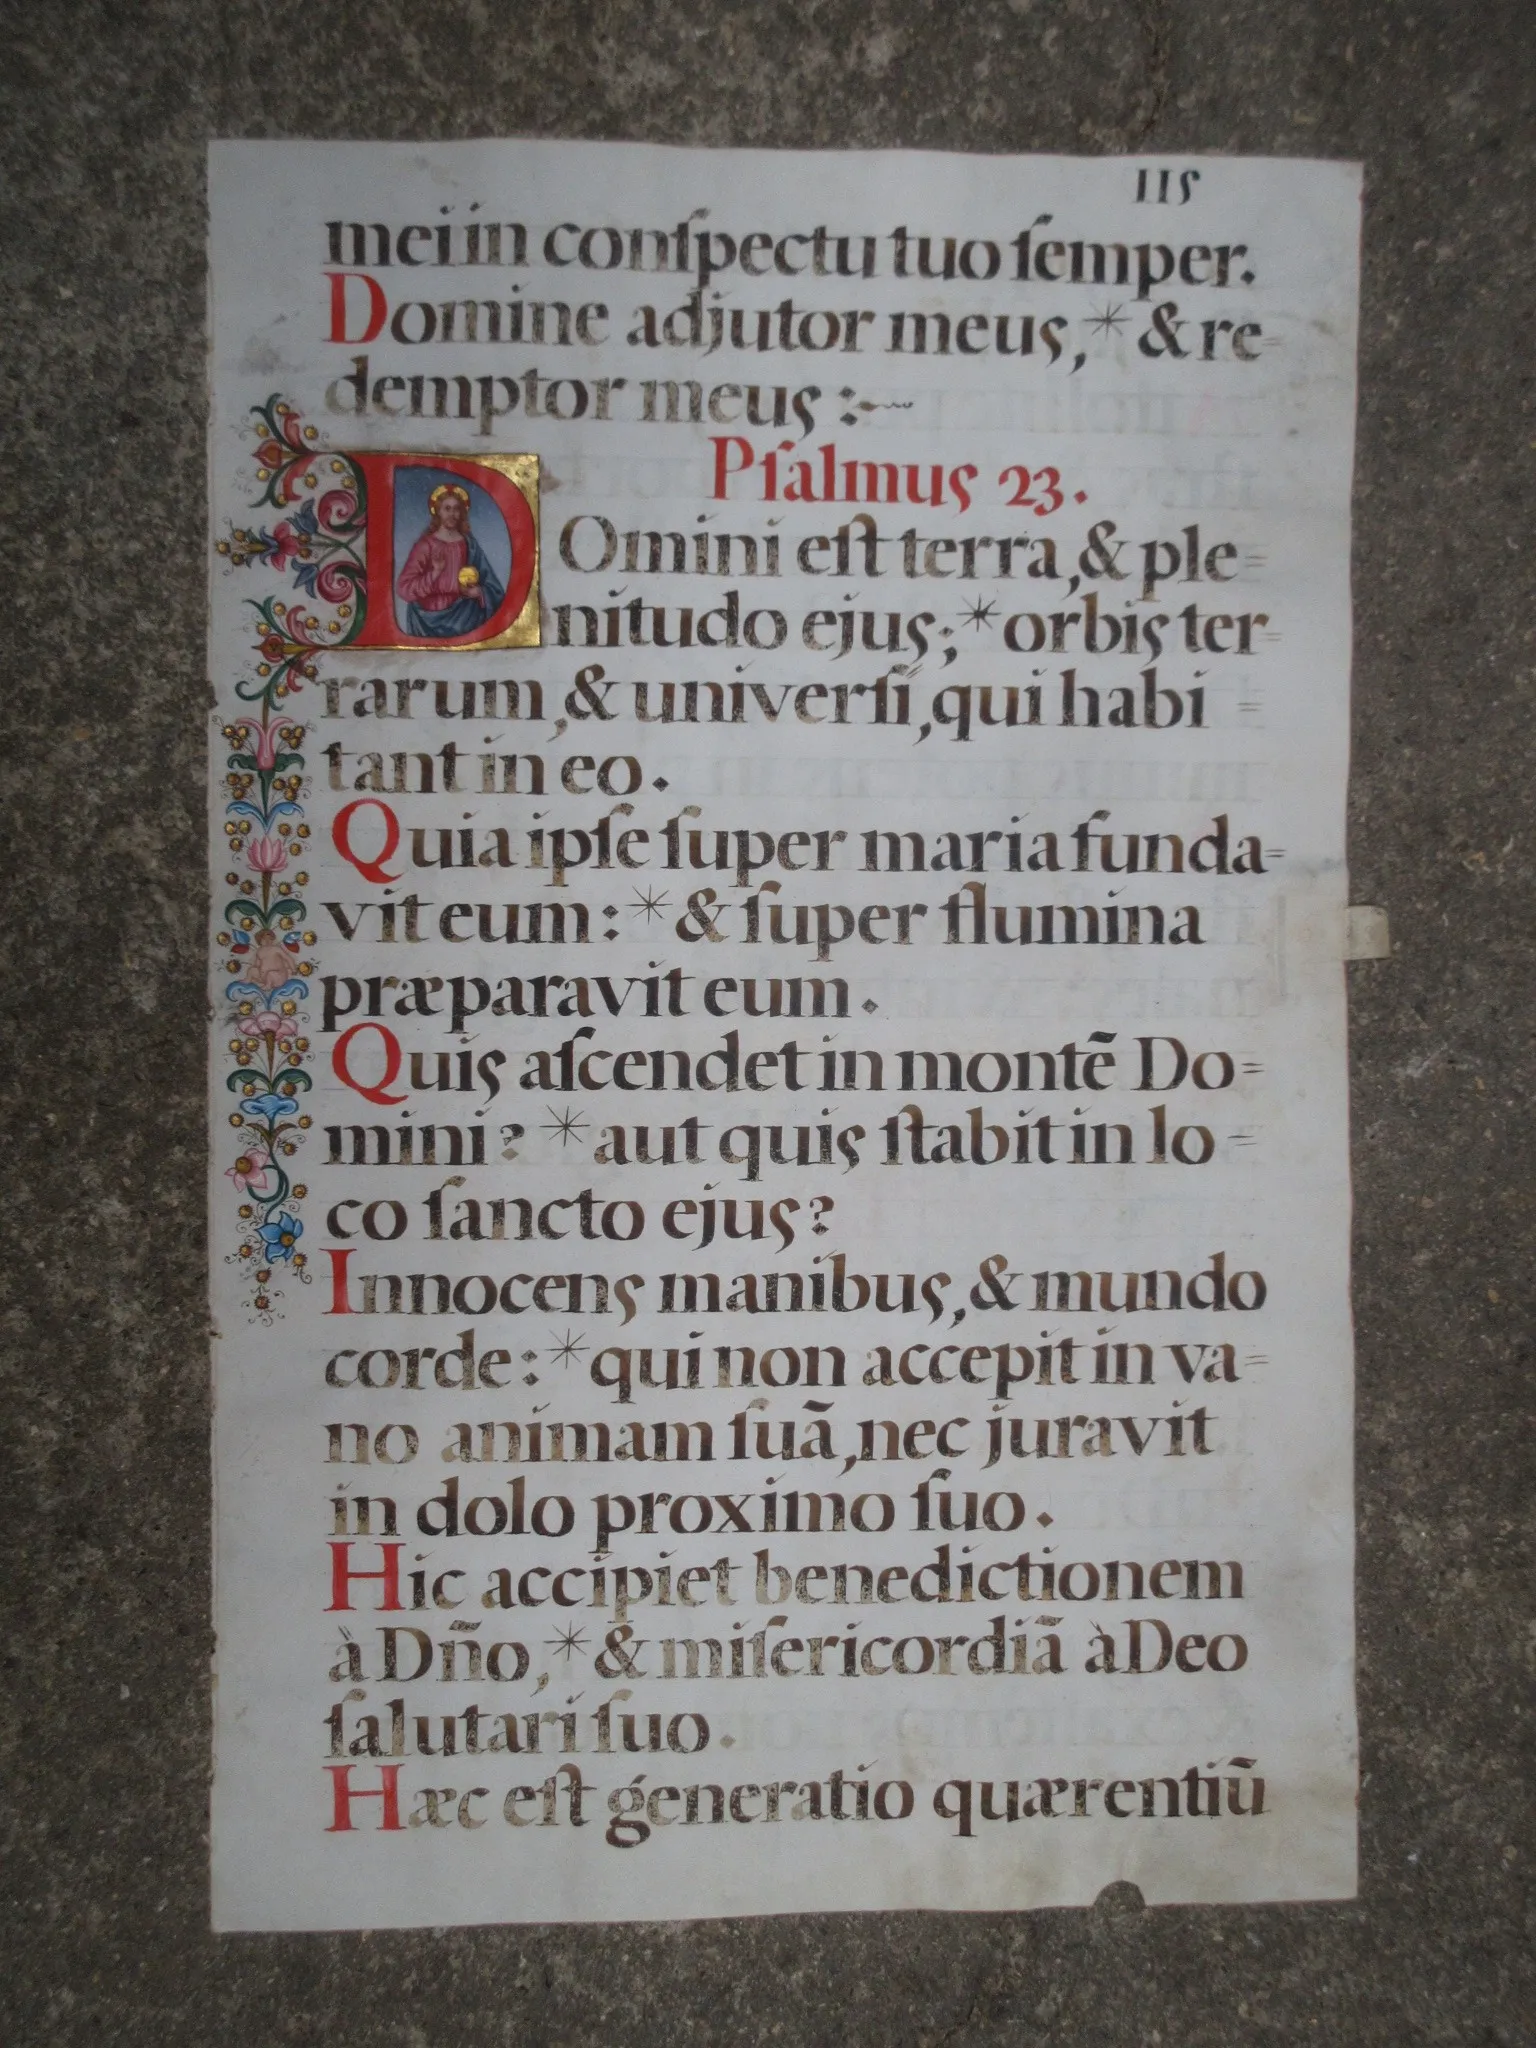 115
mei in conſpectu tuo ſemper.
Domine adjutor meus,* & re=
demptor meus :~
Pſalmus 23.
DOmini eſt terra, & ple=
nitudo ejus;* orbis ter=
rarum, & univerſi, qui habi=
tant in eo.
Quia ipſe ſuper maria funda=
vit eum :* & ſuper flumina
præparavit eum.
Quis aſcendet in montē Do=
mini? * aut quis ſtabit in lo=
co ſancto ejus?
Innocens manibus, & mundo
corde :* qui non accepit in va=
no animam ſuā, nec juravit
in dolo proximo ſuo.
Hic accipiet benedictionem
à Dño,* & miſericordiā à Deo
ſalutari ſuo.
Hæc eſt generatio quærentiū